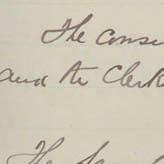 The consi
and the Clerk
The